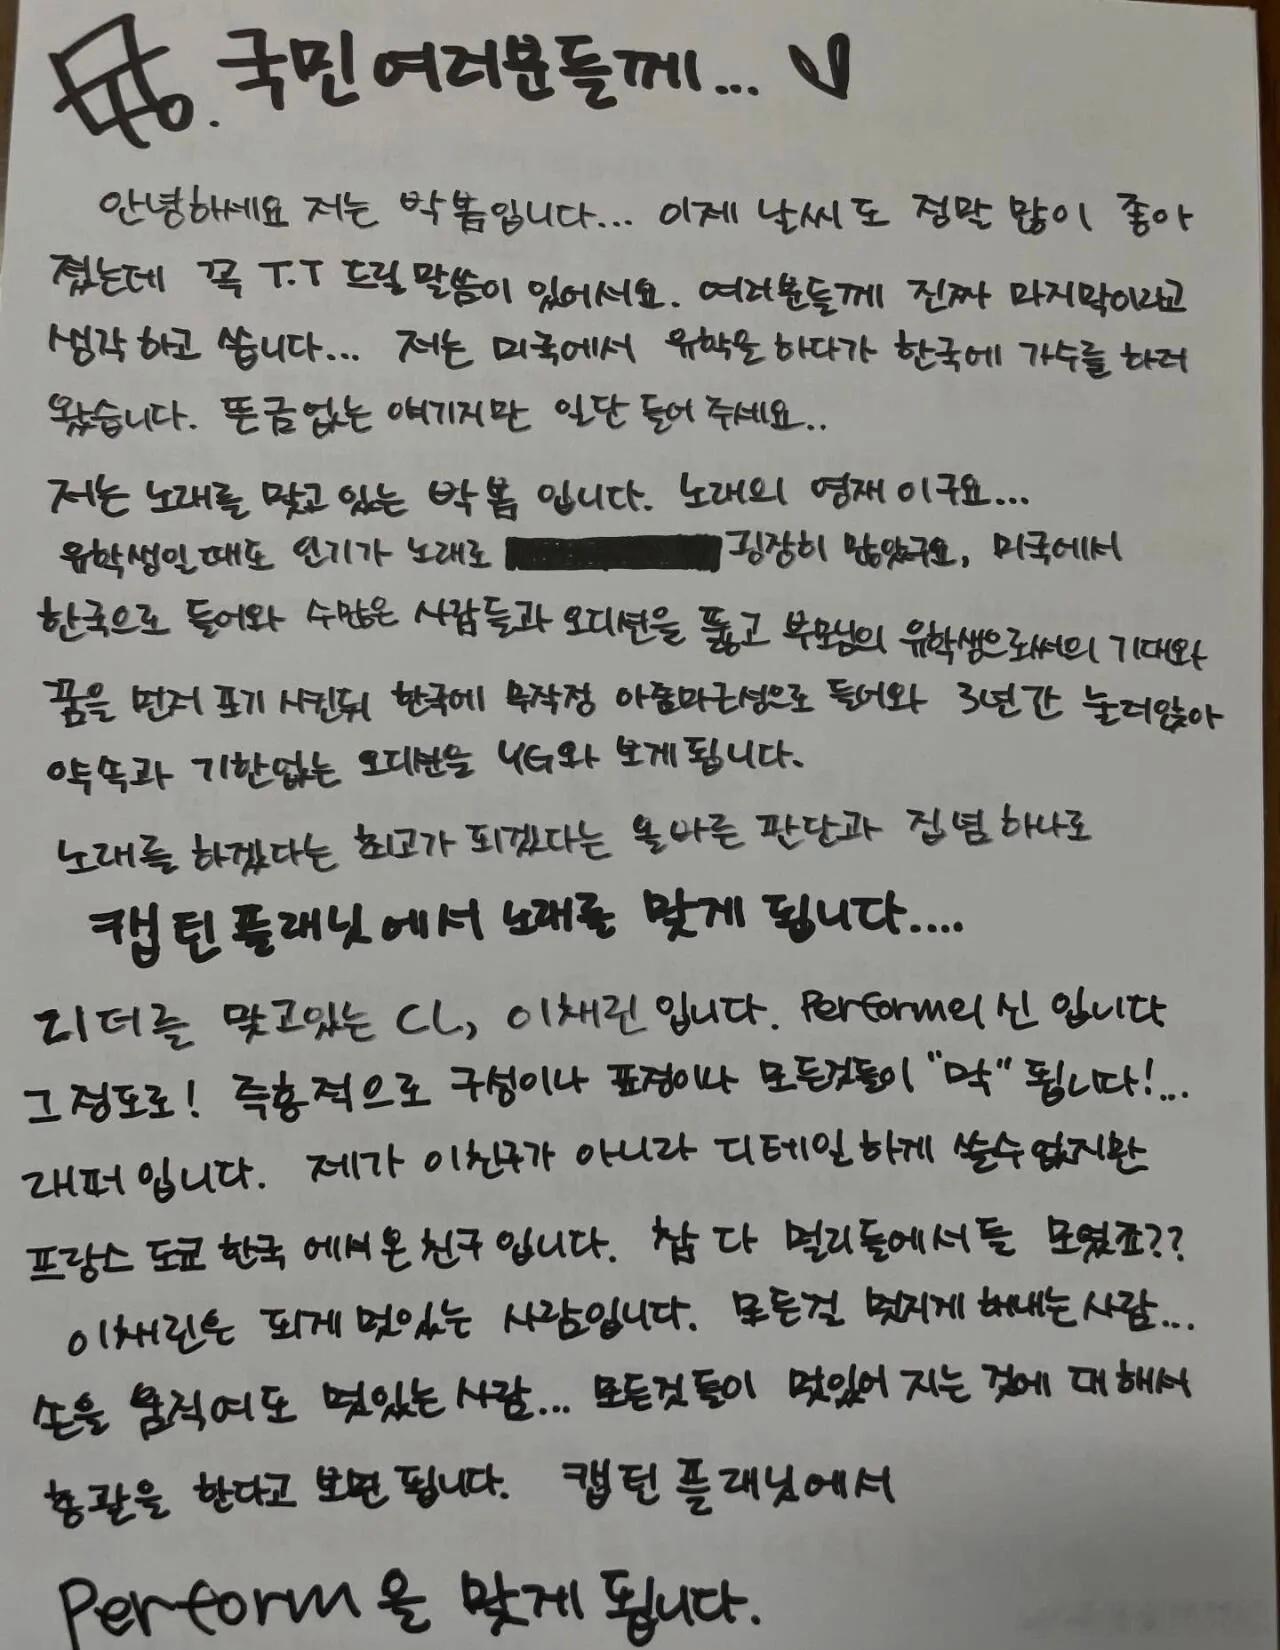 국민여러분들께...
안녕하세요 저는 박봄입니다... 이제 날씨도 정말 많이 좋아
졌는데 꼭 T.T 드릴말씀이 있어서요. 여러분들께 진짜 마지막이라고
생각하고 씁니다... 저는 미국에서 유학을 하다가 한국에 가수를 하러
왔습니다. 뜬금없는 얘기지만 일단 들어주세요..
저는 노래를 맞고있는 박봄 입니다. 노래의 영재이구요...
유학생일때도 인기가 노래로 굉장히 많았구요, 미국에서
한국으로 들어와 수많은 사람들과 오디션을 뚫고 부모님의 유학생으로써의 기대와
꿈을 먼저 포기 시킨뒤 한국에 무작정 아줌마근성으로 들어와 3년간 눌러앉아
약속과 기한없는 오디션을 YG와 보게됩니다.
노래를 하겠다는 최고가 되겠다는 올바른 판단과 집념 하나로
캡틴플래닛에서 노래를 맞게 됩니다....
리더를 맞고있는 CL, 이채린입니다. Perform의 신 입니다
그정도로! 즉흥적으로 구성이나 표정이나 모든것들이 "막" 됩니다!...
래퍼입니다. 제가 이친구가 아니라 디테일하게 쓸수없지만
프랑스 도쿄 한국에서온친구입니다. 참 다 멀리들에서들 모였죠??
이채린은 되게 멋있는 사람입니다. 모든걸 멋지게 해내는사람...
손을 움직여도 멋있는사람... 모든것들이 멋있어 지는 것에 대해서
총괄을 한다고 보면 됩니다. 캡틴플래닛에서
Perform을 맞게 됩니다.